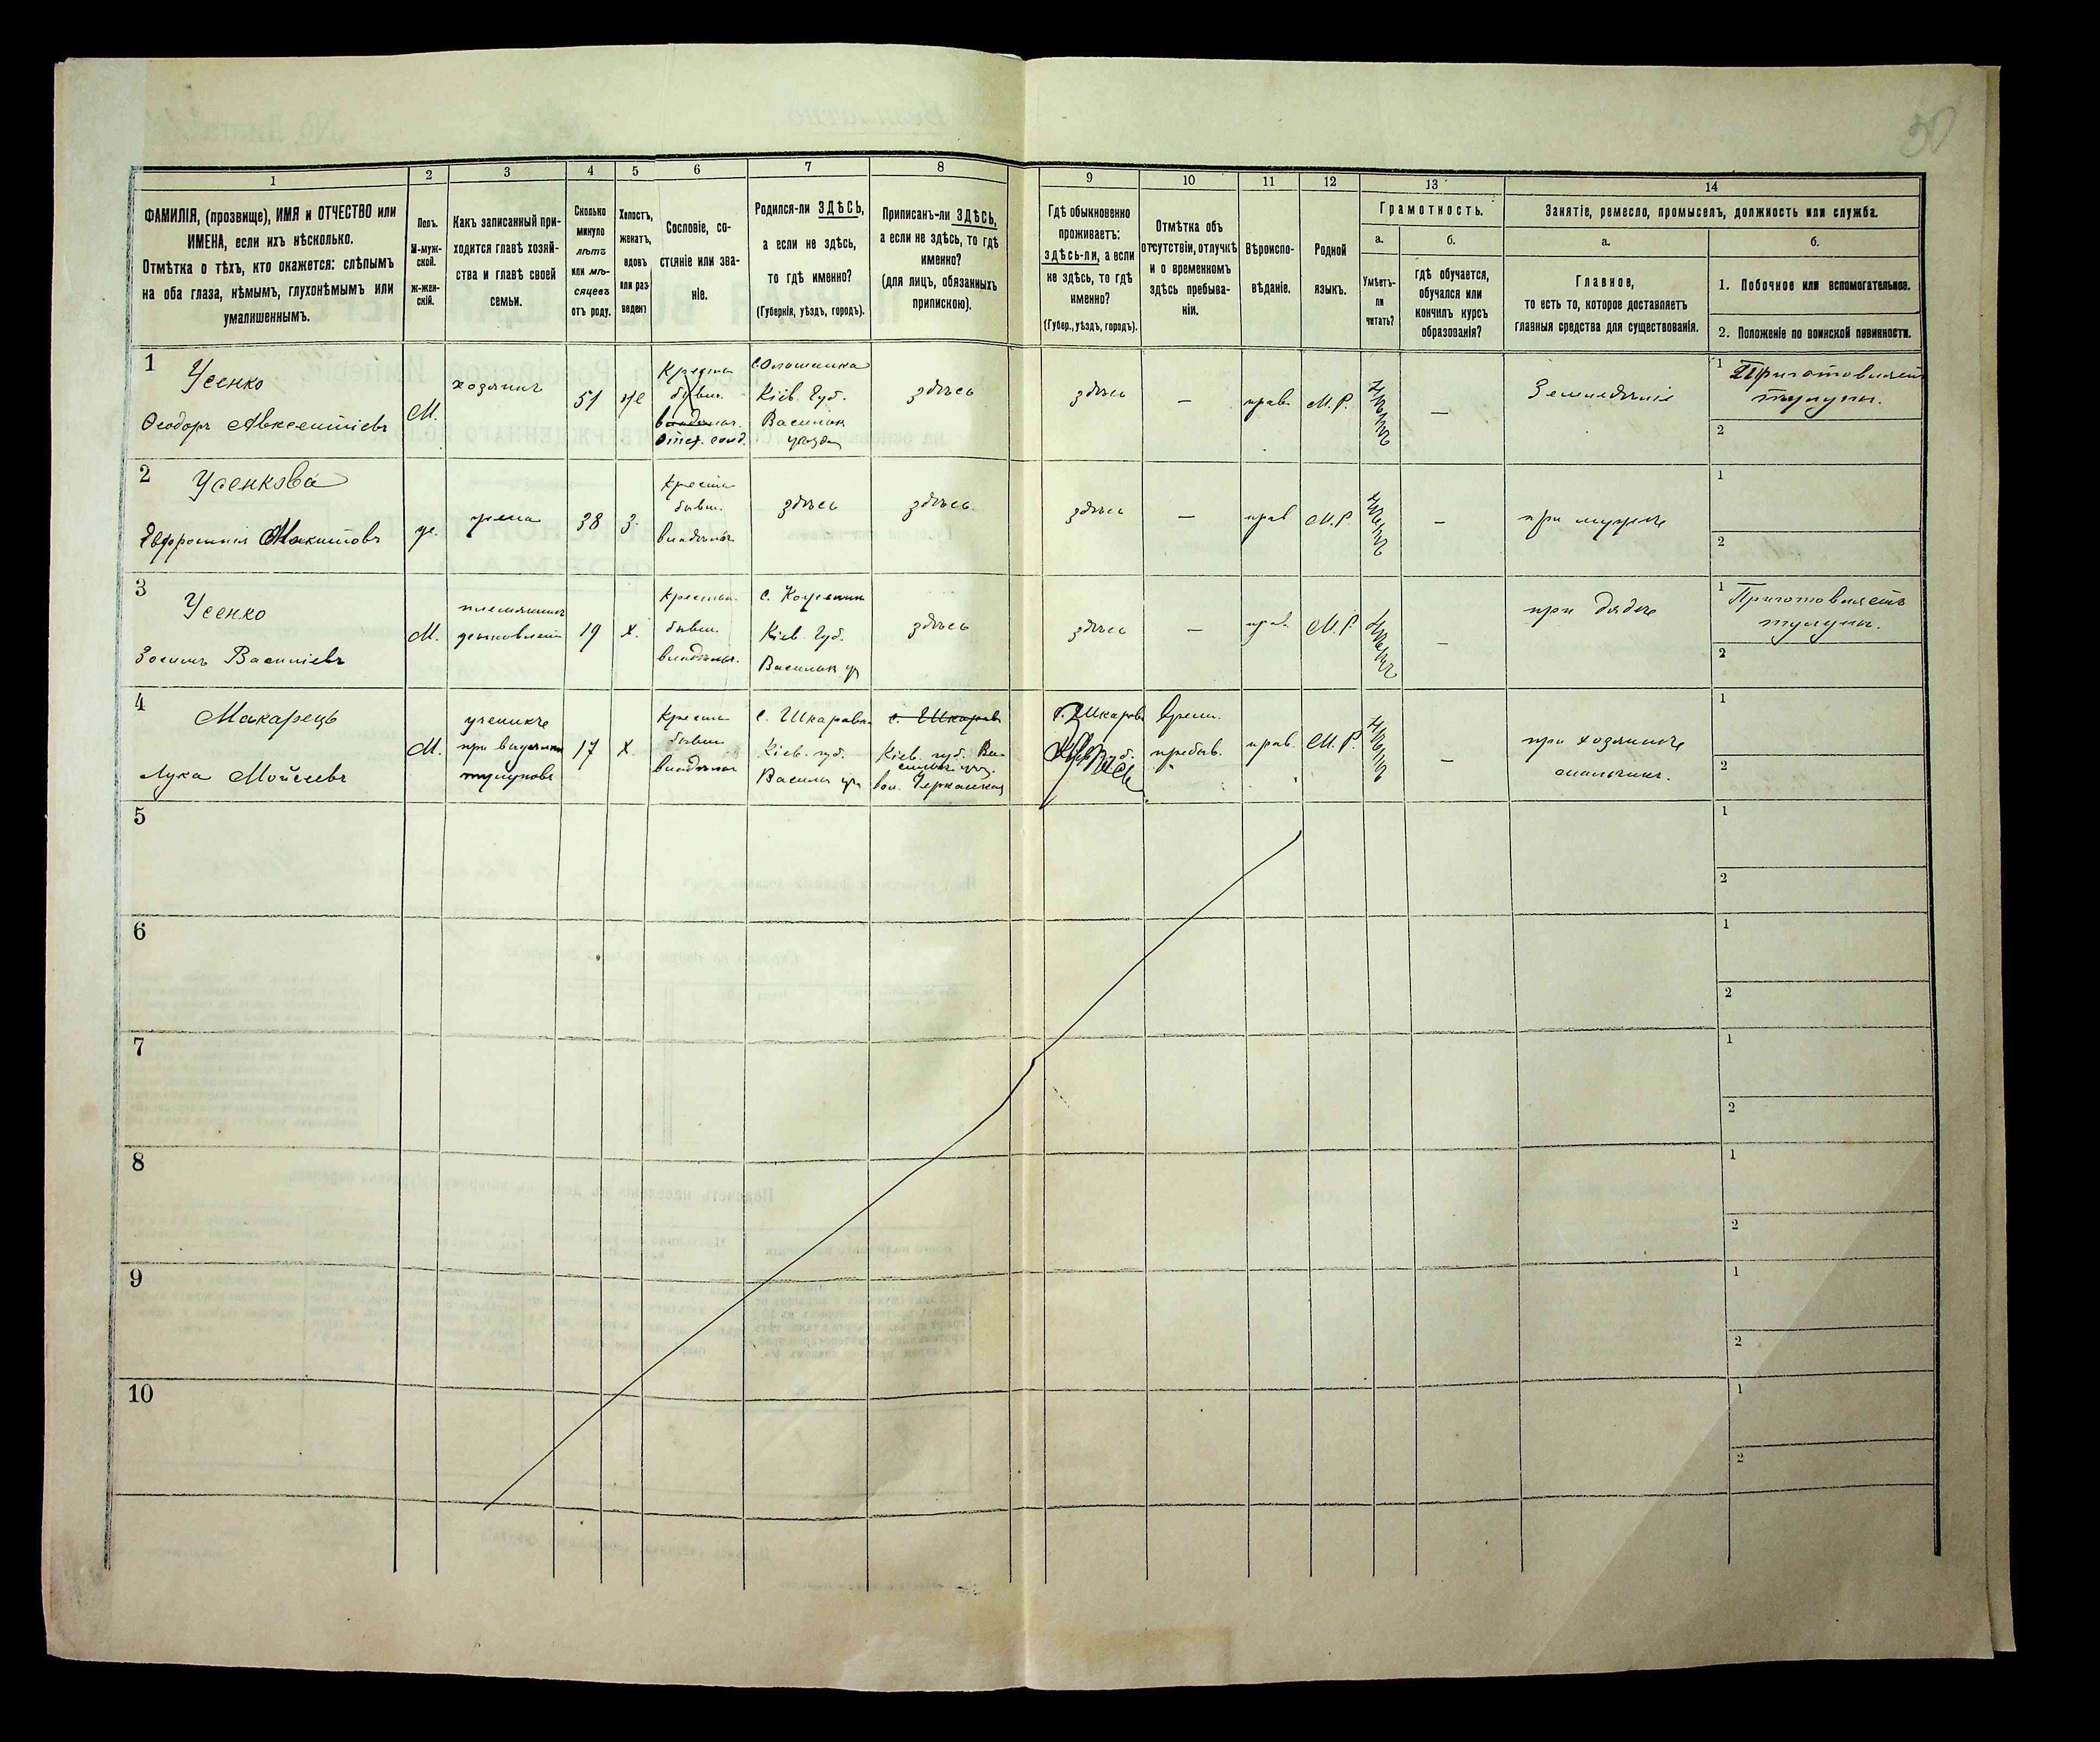 30
1 2 3 4 5 6 7 8 9 10 11 12 13 14
ФАМИЛІЯ, (прозвище), ИМЯ и ОТЧЕСТВО или
ИМЕНА, если ихъ нѣсколько.
Отмѣтка о тѣхъ, кто окажется: слѣпымъ
на оба глаза, нѣмымъ, глухонѣмымъ или
умалишеннымъ.
Полъ.
М-муж-
ской.
Ж-жен-
скій.
Какъ записанный при-
ходится главѣ хозяй-
ства и главѣ своей
семьи.
Сколько
минуло
лѣтъ
или мѣ-
сяцевъ
отъ роду.
Холостъ,
женатъ,
вдовъ
или раз-
веденъ
Сословіе, со-
стояніе или зва-
ніе.
Родился-ли ЗДѢСЬ,
а если не здѣсь,
то гдѣ именно?
(Губернія, уѣздъ, городъ).
Приписанъ-ли ЗДѢСЬ,
а если не здѣсь, то гдѣ
именно?
(для лицъ, обязанныхъ
припискою).
Гдѣ обыкновенно
проживаетъ:
здѣсь-ли, а если
не здѣсь, то гдѣ
именно?
(Губер., уѣздъ, городъ).
Отмѣтка объ
отсутствіи, отлучкѣ
и о временномъ
здѣсь пребыва-
ніи.
Вѣроиспо-
вѣданіе.
Родной
языкъ.
Грамотность.
а.
Умѣетъ-
ли
читать?
б.
гдѣ обучается,
обучался или
кончилъ курсъ
образованія?
Занятіе, ремесло, промыселъ, должность или служба.
а.
Главное,
то есть то, которое доставляетъ
главныя средства для существованія.
б.
1. Побочное или вспомогательное.
2. Положеніе по воинской повинности.
1
Усенко
Ѳеодоръ Авксентіевъ
М.
хозяинъ
51
же
Крестья
бывш.
владѣльч.
Кіев. Губ.
Васильк
уѣзда
здѣсь
здѣсь
—
прав.
М. Р.
—
Земледѣліе
1 Приготовляетъ
тулупы.
2
2
Усенкова
Евфросинія Никитовъ
же.
жена
38
з.
Крестья
бывш.
владѣльч
здѣсь
здѣсь
здѣсь
—
прав
М. Р.
—
при мужѣ
1
2
3
Усенко
Зосимъ Василіевъ
М.
племянникъ
усыновлен
19
х.
Крестьян.
бывш.
владѣльч.
Кіев. Губ.
Васильк уѣ
здѣсь
здѣсь
—
прав.
М. Р.
—
при дядѣ
1 Приготовляетъ
тулупы.
2
4
Макарець
Лука Мойсеевъ
М.
ученикъ
при выдѣлкѣ
тулуповъ
17
х.
Крестья
бывш.
владѣльч
с. Шкаровка
Кіев. губ.
Васильк уѣ
с. Шкаров
Кіев. губ. Ва-
сильк уѣз.
с. Шкаров
врем.
пребыв.
прав.
М. Р.
—
при хозяинѣ
1
2
5
1
2
6
1
2
7
1
2
8
1
2
9
1
2
10
1
2